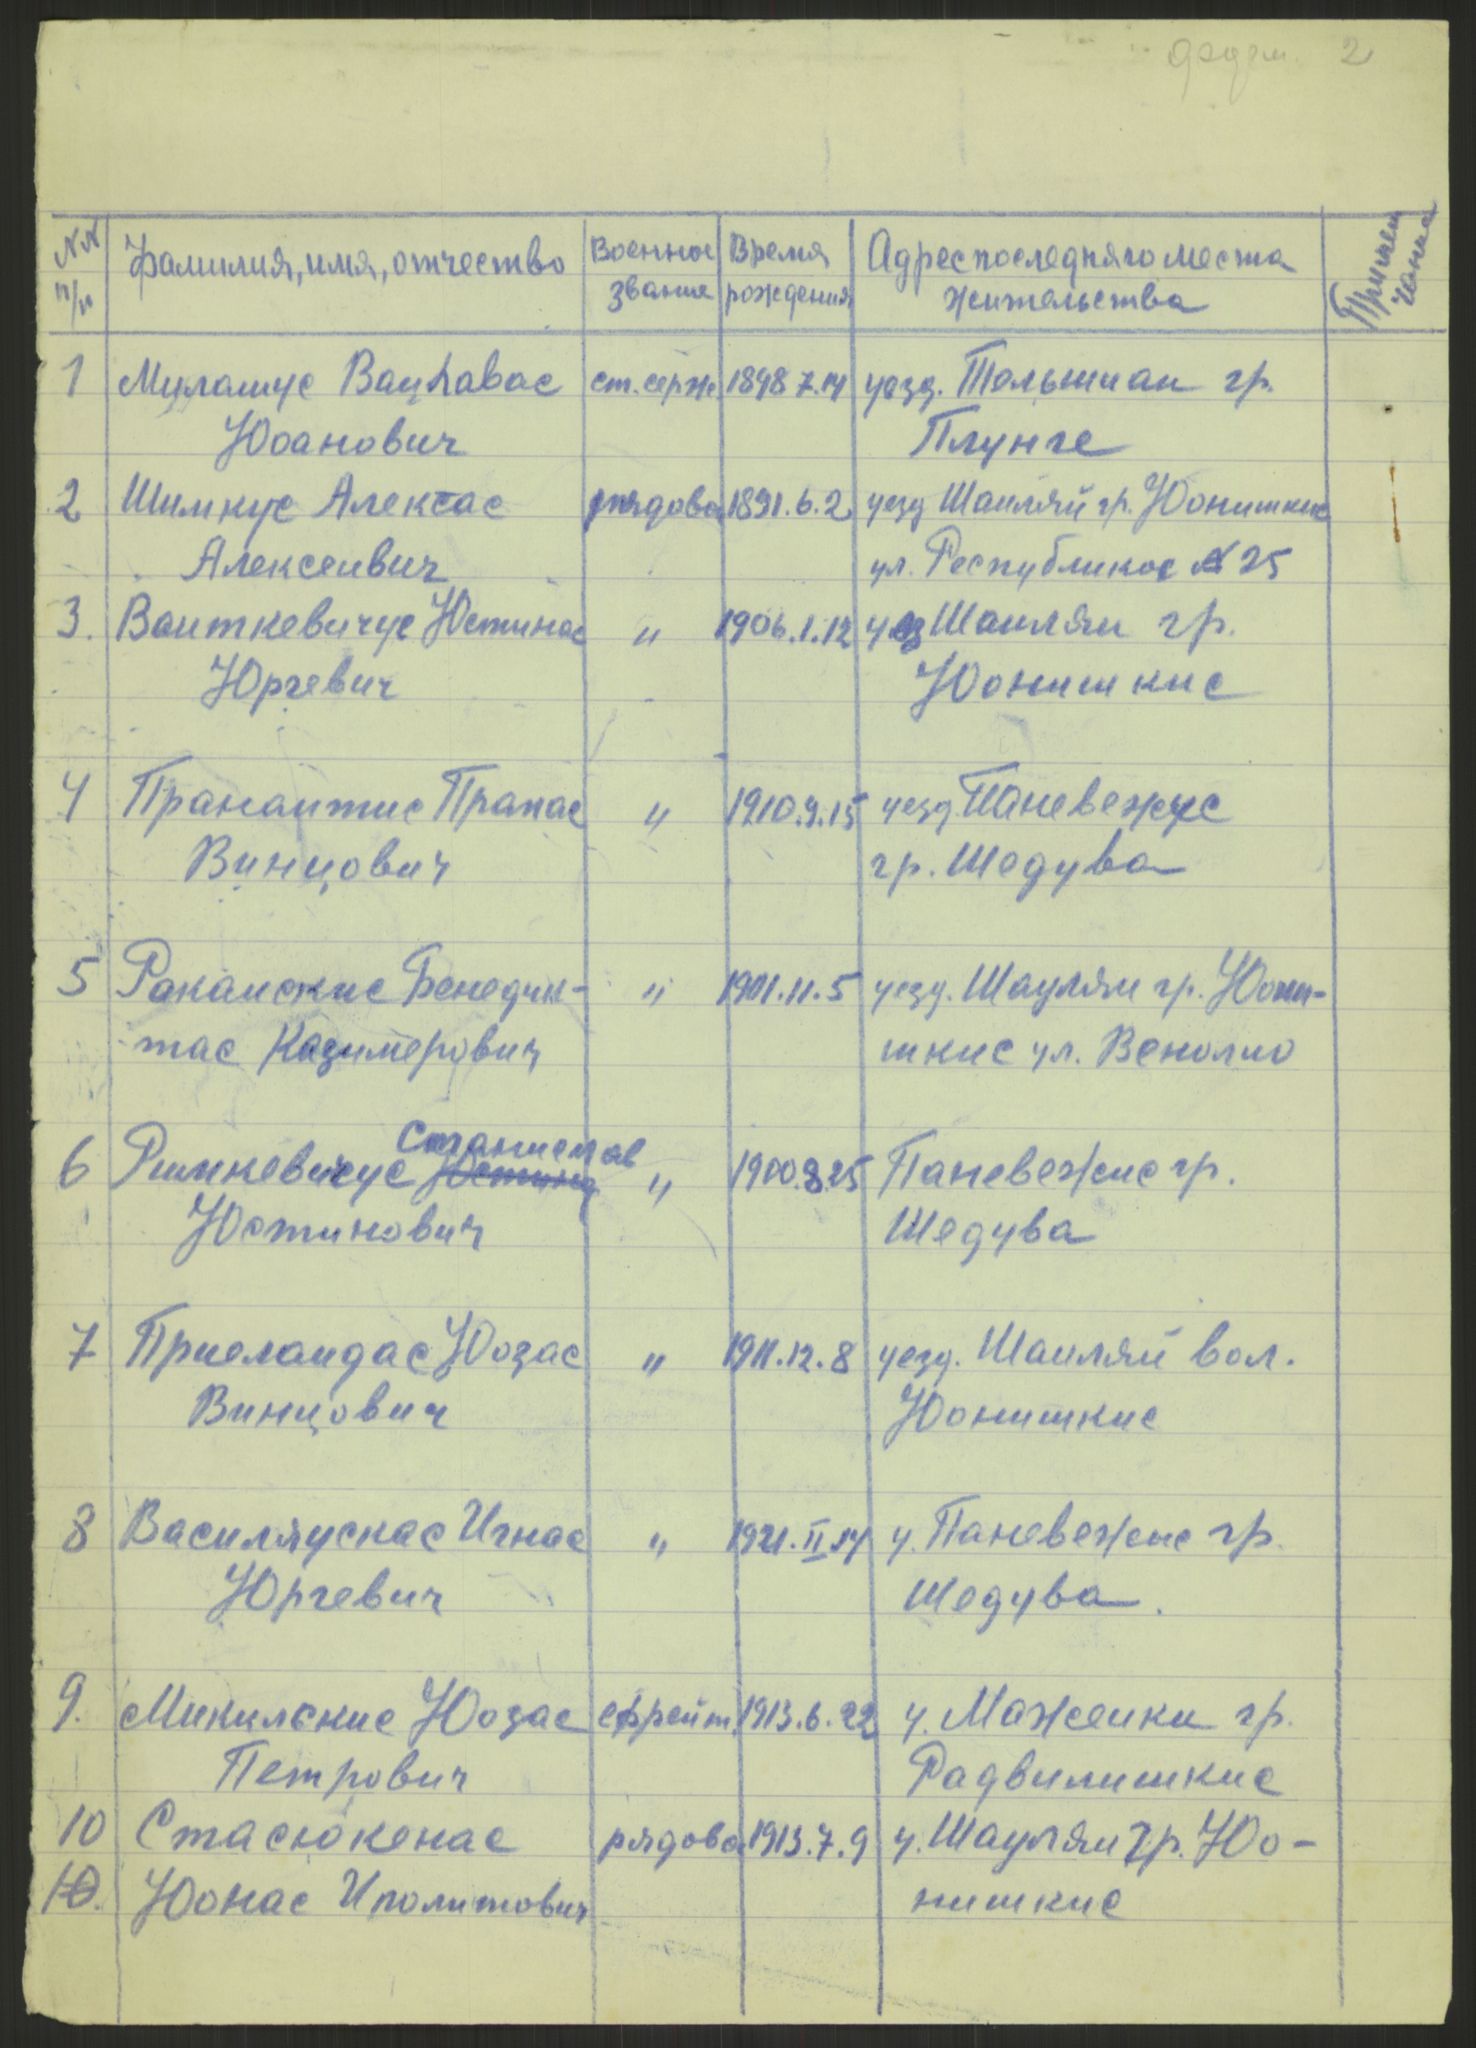 2
№№ п/п Фамилия, имя, отчество Военное звание Время рождения Адрес последняго места жительства Примечание
1 Мулашус Вацлавас ст. серж. 1898 7.14 уезд. Тельшиаи гр.
Юоанович Плунге
2 Шимкус Алексас рядова 1891.6.2 уезд Шаиляй гр. Юонишкис
Алексеивич ул. Республикос № 25
3. Ваиткевичус Юстинас " 1906.1.12 уез Шаиляи гр.
Юргевич Юонишкис
4 Пранаитис Пранас " 1910.9.15 уезд. Паневежус
Винцович гр. Шедува
5 Ракаиские Бенедик- " 1901.11.5 уезд. Шауляи гр. Юони-
тас Казимерович шкис ул. Венолио
Станислав
6 Римкевичус Юстина " 1900.8.25 Паневежис гр.
Юстинович Шедува
7 Приеландас Юозас " 1911.12.8 уезд. Шаиляй вол.
Винцович Юонишкис
8 Василяускас Игнас " 1921.II.14 у. Паневежис гр.
Юргевич Шедува.
9. Микилские Юозас ефрейт. 1913.6.22 у. Мажеики гр.
Петрович Радвилишкис
10 Стасюкенас рядова 1913.7.9 у. Шауляи гр. Юо-
10. Юонас Иполитович нишкис